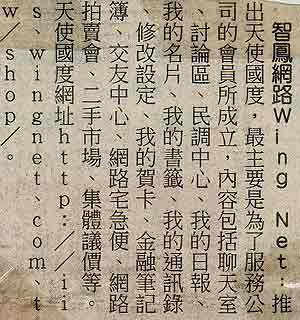 智鳳網路Wing Net：推
出天使國度，最主要是為了服務公
司的會員所成立，內容包括聊天室
、討論區、民調中心、我的日報、
我的名片、我的書籤、我的通訊錄
、修改設定、我的賀卡、金融筆記
簿、交友中心、網路宅急便、網路
拍賣會、二手市場、集體議價等。
天使國度網址http://ii
s.wingnet.com.t
w/shop/。